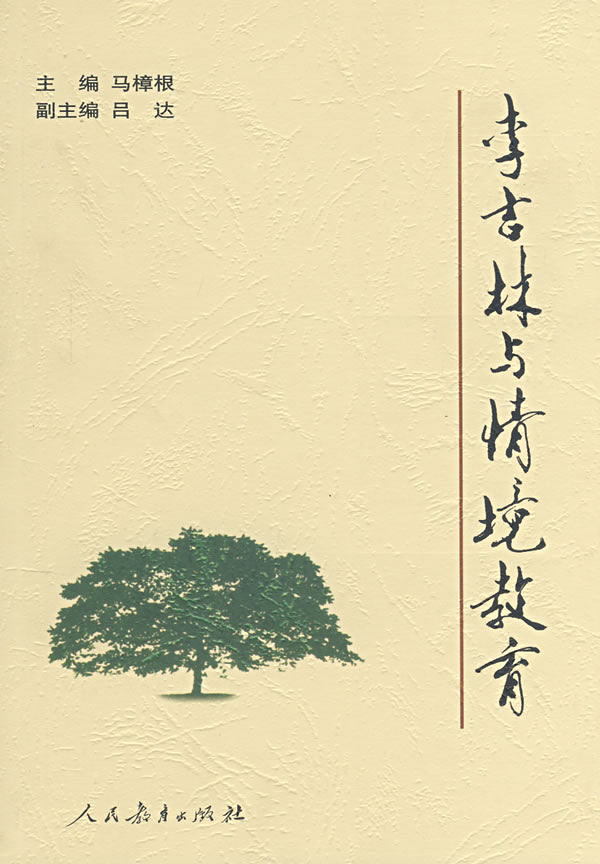 主 编 马樟根
副主编 吕 达
李吉林与情境教育
人民教育出版社